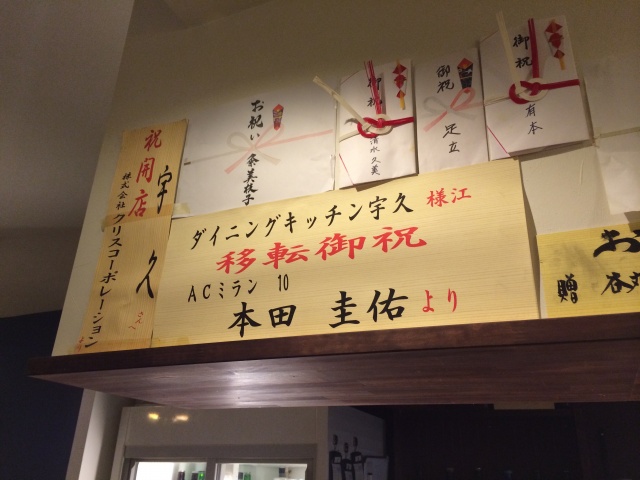 祝開店
宇久
さん江
株式会社クリスコーポレーション
お祝い
奈美枝子
御祝
清水久美
御祝
足立
御祝
有本
ダイニングキッチン宇久 様江
移転御祝
ACミラン 10
本田 圭佑より
お
贈